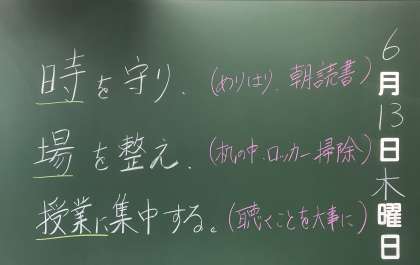 6月13日木曜日
時を守り、(めりはり、朝読書)
場を整え、(机の中、ロッカー掃除)
授業に集中する。(聴くことを大事に)